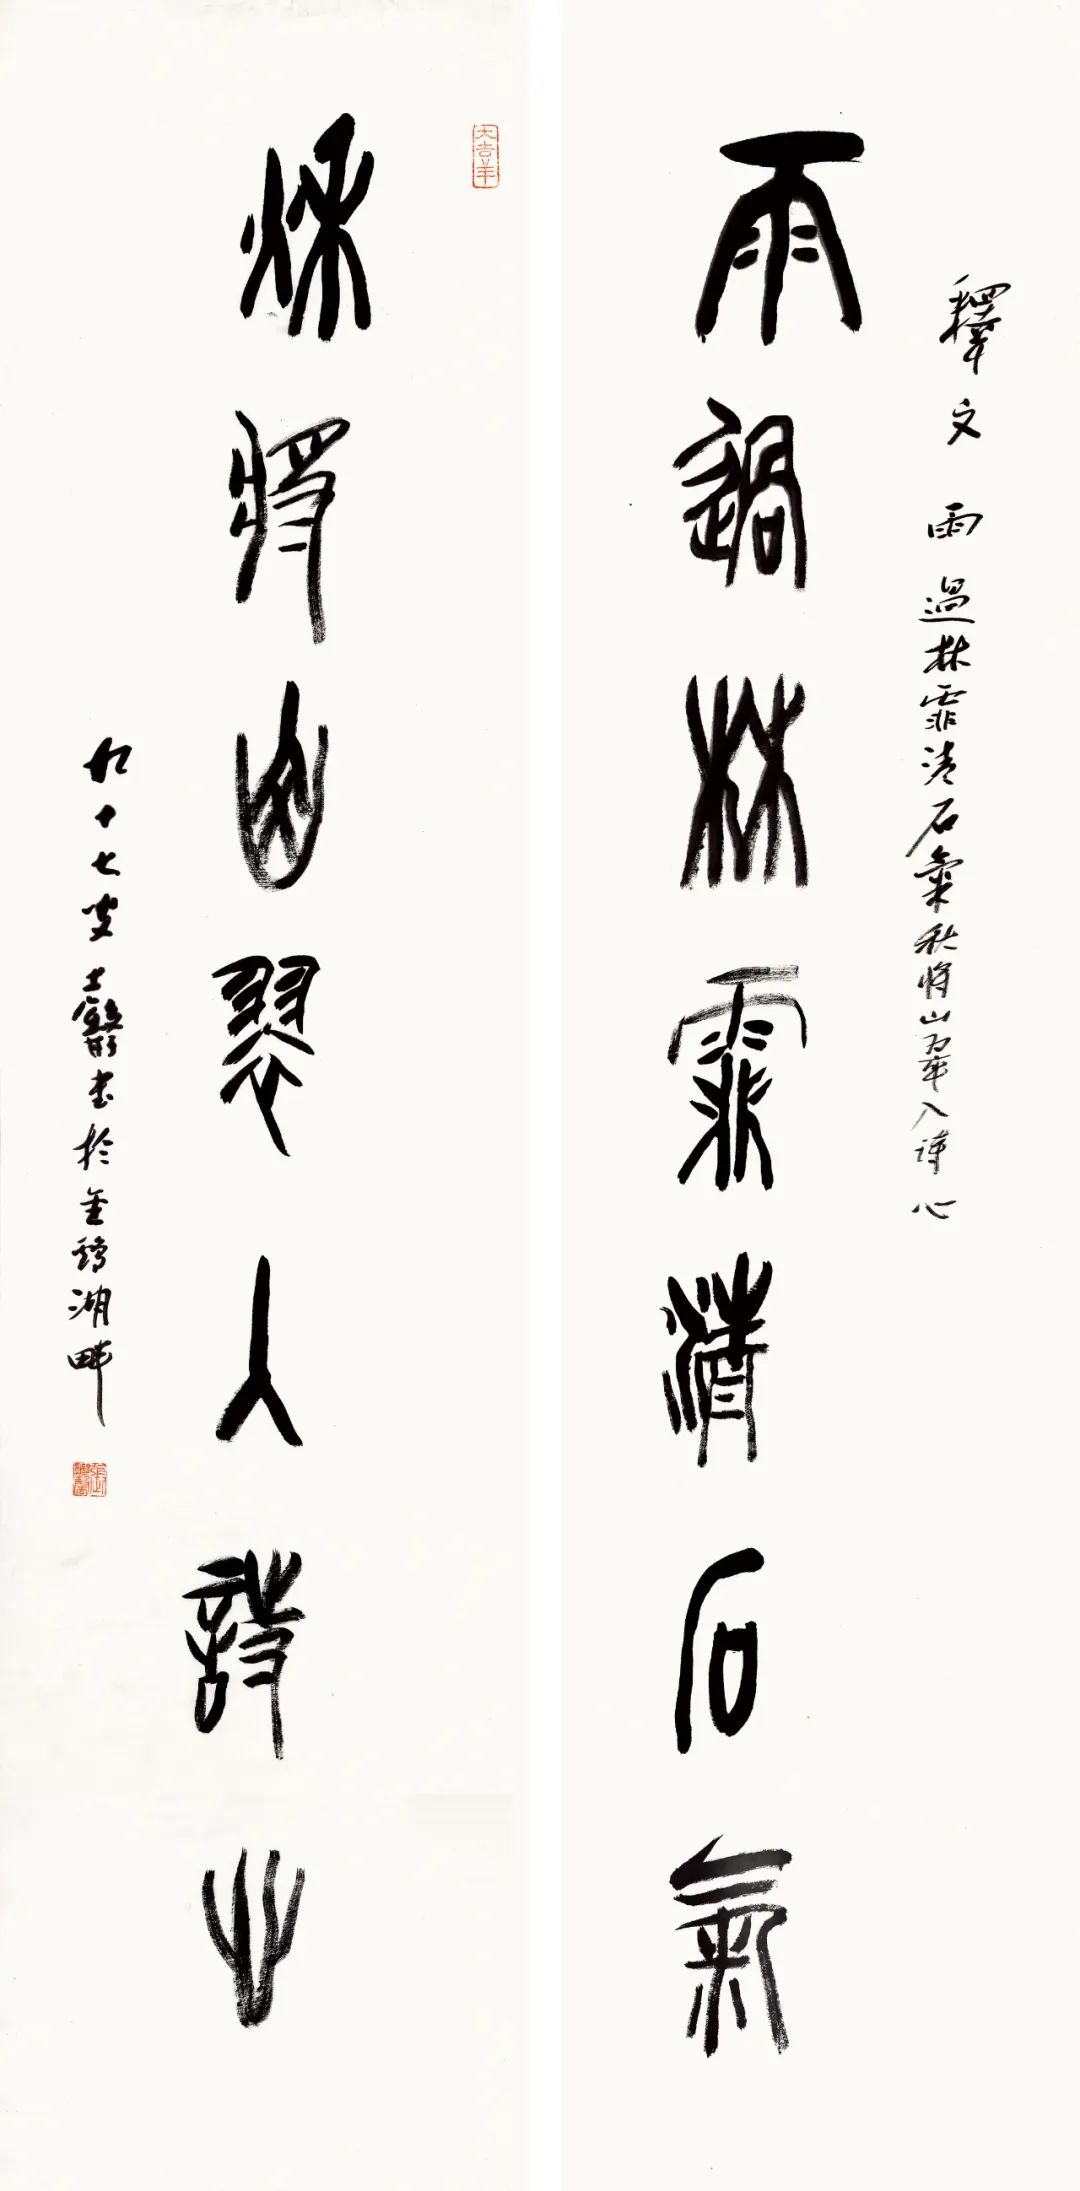 釋文 雨過林霏清石氣秋將山翠入詩心
雨過林霏清石氣
大吉羊
秋將山翠入詩心
九十七叟士書於金鷄湖畔